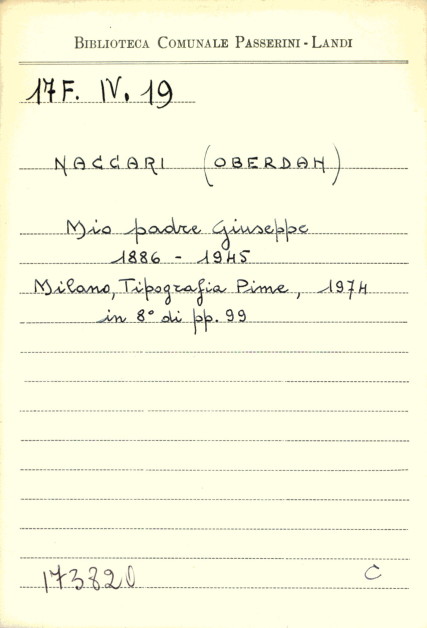 BIBLIOTECA COMUNALE PASSERINI - LANDI
17 F. IV. 19
NACCARI (OBERDAN)
Mio padre Giuseppe
1886 - 1945
Milano, Tipografia Pime, 1974
in 8° di pp. 99
173820 C